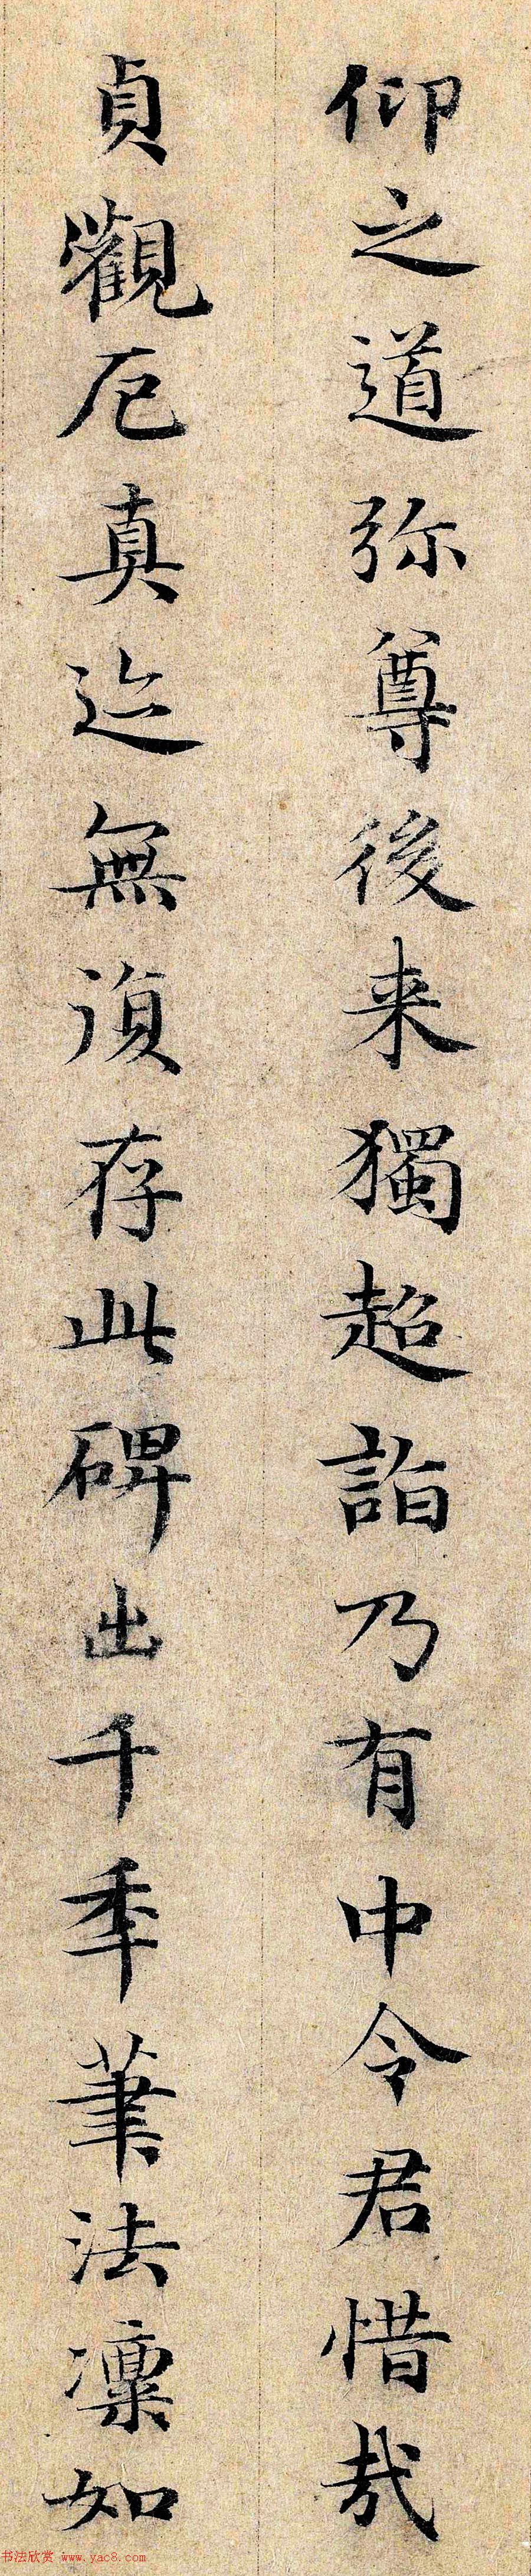 仰之道弥尊後来獨超詣乃有中令君惜哉
貞觀厄真迹無須存此碑出千季筆法凛如
书法欣赏 www.yac8.com